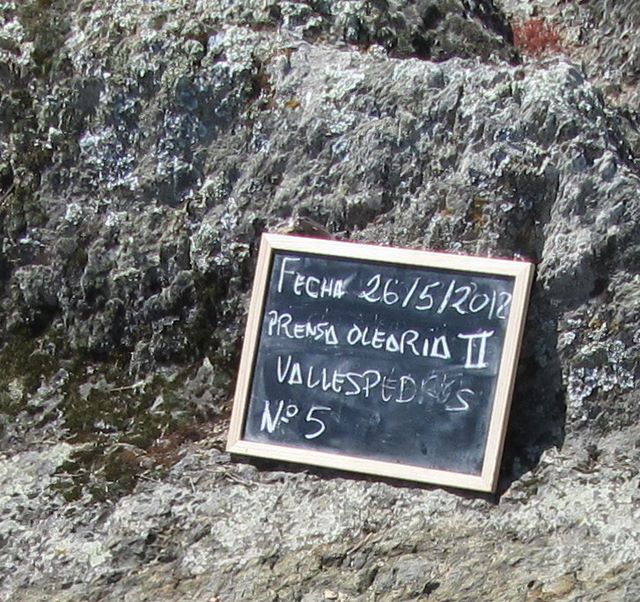 FECHA 26/5/2012
PRENSA OLEARIA II
VALLESPEDRES
Nº 5